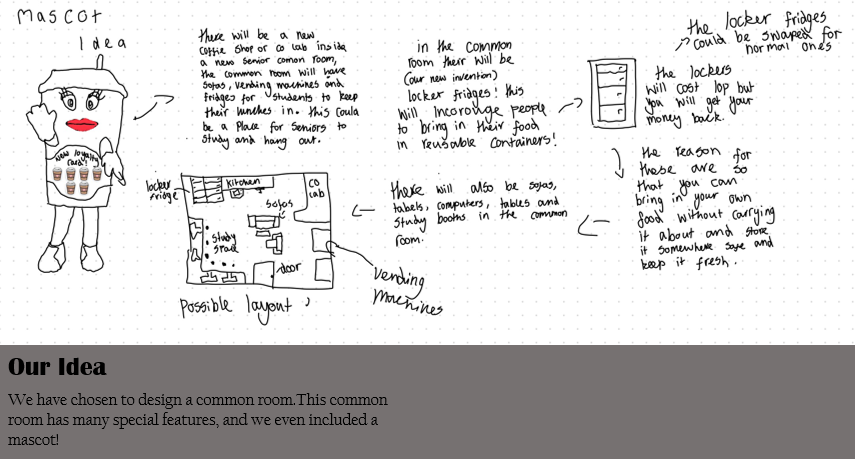 Mascot
Idea
New loyalty
card!
there will be a new
coffie shop or co lab inside
a new senior comon room,
the common room will have
sofas, vending machines and
fridges for students to keep
their lunches in. this could
be a place for seniors to
study and hang out.
in the common
room their will be
(our new invention)
locker fridges! this
will incorouge people
to bring in their food
in reusable containers!
the locker fridges
could be swaped for
normal ones
the lockers
will cost 10p but
you will get your
money back.
the reason for
these are so
that you can
bring in your own
food without carrying
it about and store
it somewhere safe and
keep it fresh.
there will also be sofas,
tabels, computers, tables and
study booths in the common
room.
locker
fridge
kitchen
co
lab
sofas
study
space
door
vending
machines
Possible layout
Our Idea
We have chosen to design a common room.This common
room has many special features, and we even included a
mascot!